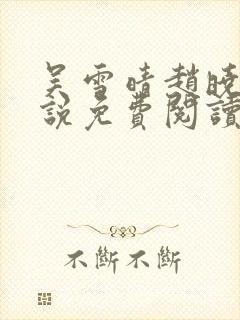 吴雪晴趙曉
說免費閱讀
不斷不斷